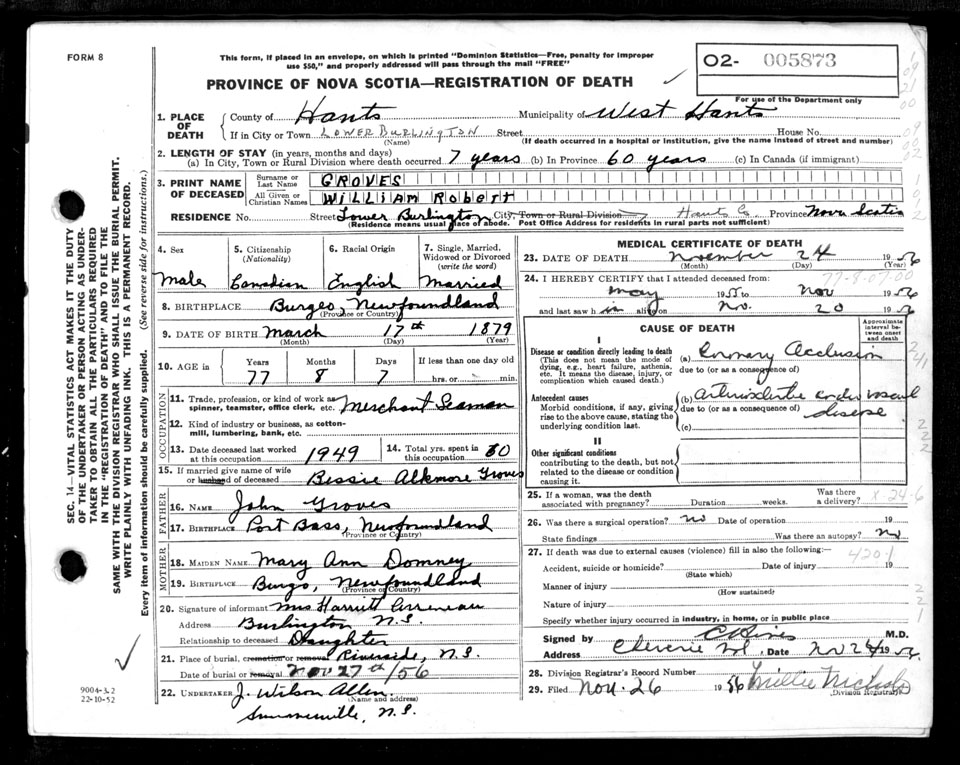 FORM 8
This form, if placed in an envelope, on which is printed "Dominion Statistics—Free, penalty for improper
use $50," and properly addressed will pass through the mail "FREE"
PROVINCE OF NOVA SCOTIA—REGISTRATION OF DEATH
O2- 005873
For use of the Department only
1. PLACE OF DEATH
County of Hants Municipality of West Hants
If in City or Town LOWER BURLINGTON Street House No.
(Name) (If death occurred in a hospital or institution, give the name instead of street and number)
2. LENGTH OF STAY (in years, months and days)
(a) In City, Town or Rural Division where death occurred 7 years (b) In Province 60 years (c) In Canada (if immigrant)
3. PRINT NAME OF DECEASED
Surname or Last Name GROVES
All Given or Christian Names WILLIAM ROBERT
RESIDENCE No. Street Lower Burlington City, Town or Rural Division Hants Co Province Nova Scotia
(Residence means usual place of abode. Post Office Address for residents in rural parts not sufficient)
4. Sex
Male
5. Citizenship
(Nationality)
Canadian
6. Racial Origin
English
7. Single, Married,
Widowed or Divorced
(write the word)
Married
8. BIRTHPLACE Burgeo, Newfoundland
(Province or Country)
9. DATE OF BIRTH March 17th 1879
(Month) (Day) (Year)
10. AGE in
Years Months Days If less than one day old
77 8 7 hrs. or min.
OCCUPATION
11. Trade, profession, or kind of work as
spinner, teamster, office clerk, etc. Merchant Seaman
12. Kind of industry or business, as cotton-
mill, lumbering, bank, etc.
13. Date deceased last worked
at this occupation 1949
14. Total yrs. spent in
this occupation 50
15. If married give name of wife
or husband of deceased Bessie Alkmore Groves
FATHER
16. NAME John Groves
17. BIRTHPLACE Port Bass, Newfoundland
(Province or Country)
MOTHER
18. MAIDEN NAME Mary Ann Domney
19. BIRTHPLACE Burgo, Newfoundland
(Province or Country)
20. Signature of informant Mrs Harriett Arseneau
Address Burlington N.S.
Relationship to deceased Daughter
21. Place of burial, cremation or removal Riverside, N.S.
Date of burial or removal NOV 27th/56
22. UNDERTAKER J. Wilson Allen
(Name and address)
Summerville, N.S.
MEDICAL CERTIFICATE OF DEATH
23. DATE OF DEATH November 24 1956
(Month) (Day) (Year)
24. I HEREBY CERTIFY that I attended deceased from:
May 1955 to Nov 1956
and last saw h im alive on Nov. 20 1956
CAUSE OF DEATH
Approximate
interval be-
tween onset
and death
I
Disease or condition directly leading to death
(This does not mean the mode of
dying, e.g., heart failure, asthenia,
etc. It means the disease, injury, or
complication which caused death.)
(a) Coronary Occlusion
due to (or as a consequence of)
Antecedent causes
Morbid conditions, if any, giving
rise to the above cause, stating the
underlying condition last.
(b) Arteriosclerotic cardiovascul
due to (or as a consequence of) disease
(c)
II
Other significant conditions
contributing to the death, but not
related to the disease or condition
causing it.
25. If a woman, was the death
associated with pregnancy? Duration weeks. Was there
a delivery? X-24-6
26. Was there a surgical operation? no Date of operation 19
State findings Was there an autopsy? no
27. If death was due to external causes (violence) fill in also the following:— 420-1
Accident, suicide or homicide? Date of injury 19
(State which)
Manner of injury
(How sustained)
Nature of injury
Specify whether injury occurred in industry, in home, or in public place
Signed by M.D.
Address Cheverie N.S., Date Nov 26 1956.
28. Division Registrar's Record Number
29. Filed Nov. 26 1956 Millie Nichols
(Division Registrar)
SEC. 14—VITAL STATISTICS ACT MAKES IT THE DUTY
OF THE UNDERTAKER OR PERSON ACTING AS UNDER-
TAKER TO OBTAIN ALL THE PARTICULARS REQUIRED
IN THE "REGISTRATION OF DEATH" AND TO FILE THE
SAME WITH THE DIVISION REGISTRAR WHO SHALL ISSUE THE BURIAL PERMIT.
WRITE PLAINLY WITH UNFADING INK. THIS IS A PERMANENT RECORD.
Every item of information should be carefully supplied. (See reverse side for instructions.)
9004-3.2
22-10-52